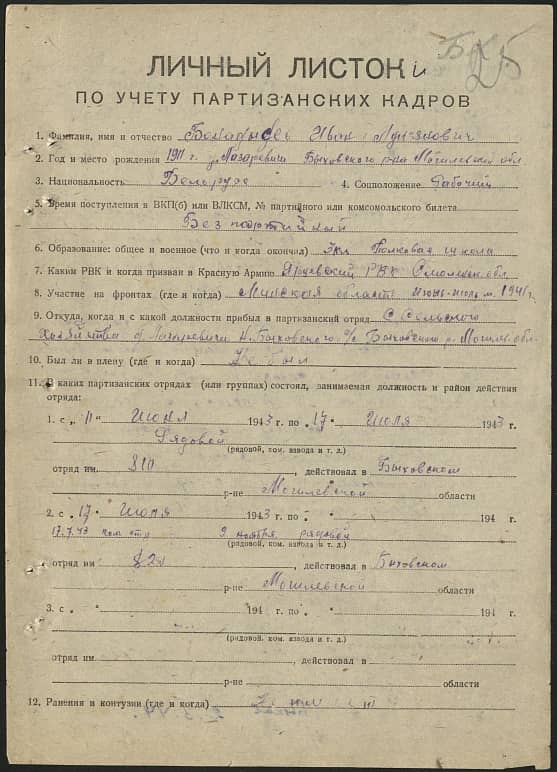 ЛИЧНЫЙ ЛИСТОК
ПО УЧЕТУ ПАРТИЗАНСКИХ КАДРОВ
1. Фамилия, имя и отчество Иван
2. Год и место рождения 1911 г. д. Лазаревичи Быховского р-на Могилевский обл
3. Национальность Белорус 4. Соцположение Рабочий
5. Время поступления в ВКП(б) или ВЛКСМ, № партийного или комсомольского билета
Без партийный
6. Образование: общее и военное (что и когда окончил) 3кл Полковая школа
7. Каким РВК и когда призван в Красную Армию Ярцевский РВК Смоленск. обл
8. Участие на фронтах (где и когда) Минская область июнь-июль м. 1941 г.
9. Откуда, когда и с какой должности прибыл в партизанский отряд С Сельского
Хозяйства д. Лазаревичи Н. Быховского с/с Быховского р. Могилев. обл.
10. Был ли в плену (где и когда) Не был
11. В каких партизанских отрядах (или группах) состоял, занимаемая должность и район действия
отряда:
1. с „11" июня 1943 г. по „17" июля 1943 г.
Рядовой
(рядовой, ком. взвода и т. д.)
отряд им. 810, действовал в Быховском
р-не Могилевской области
2. с „17" июля 1943 г. по " 194 г.
17.7.43 ком отд 9 ноября рядовой
(рядовой, ком. взвода и т. д.)
отряд им 820, действовал в Быховском
р-не Могилевской области
3. с " " 194 г. по " " 194 г.
(рядовой, ком. взвода и т. д.)
отряд им. , действовал в
р-не области
12. Ранения и контузии (где и когда)